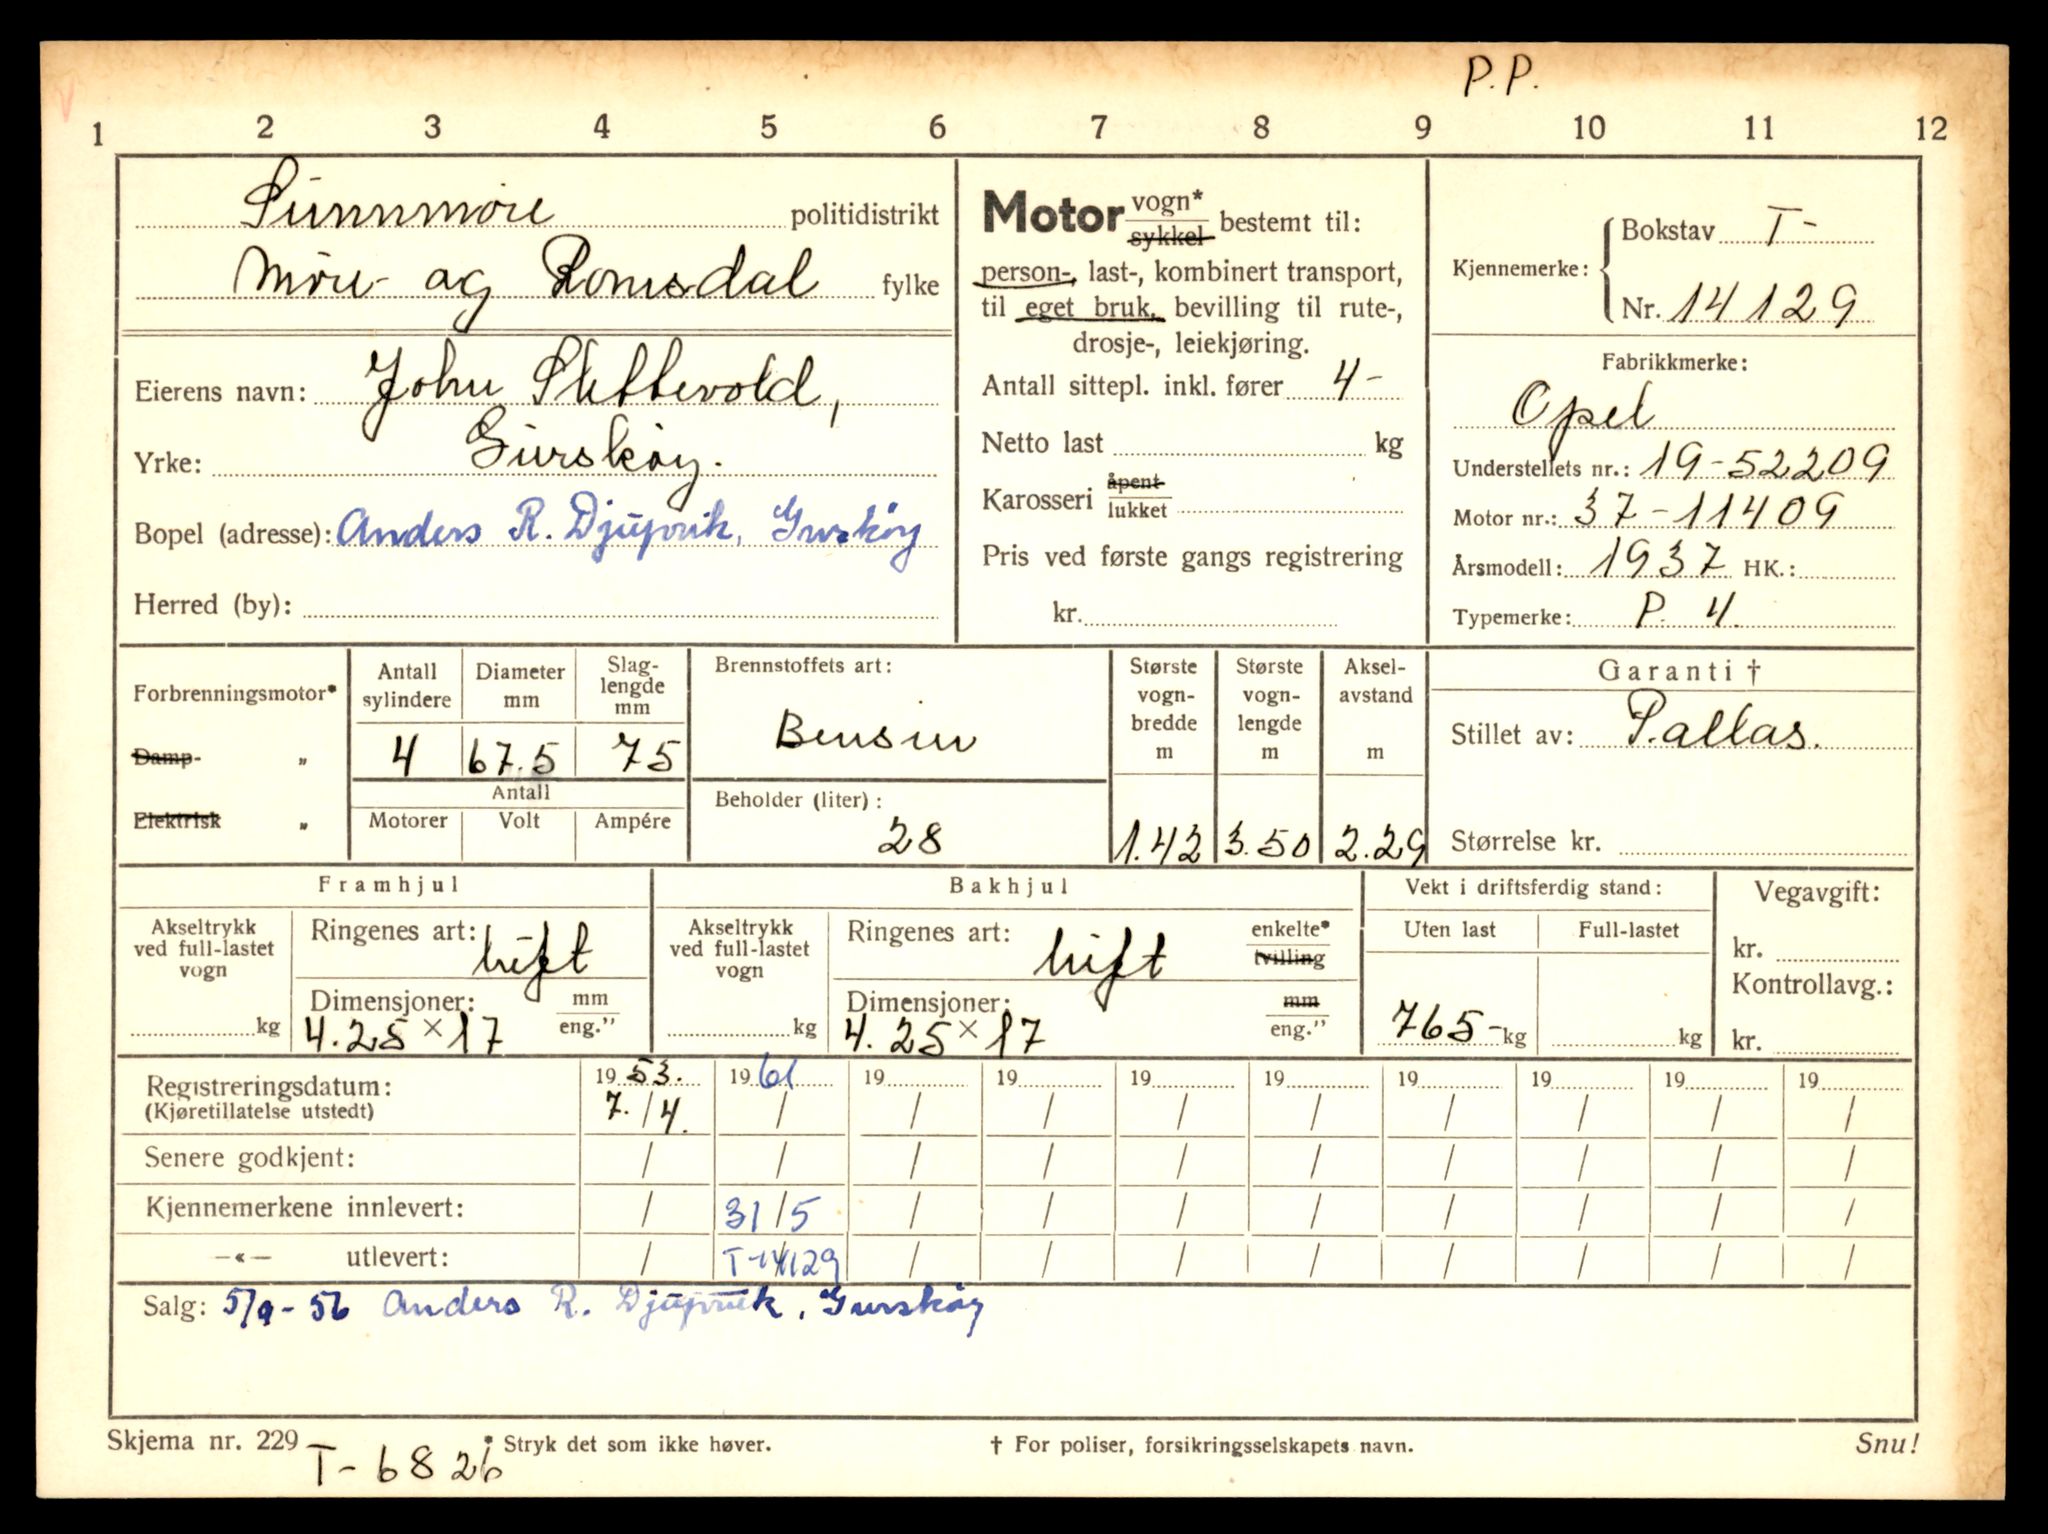 P.P.
1 2 3 4 5 6 7 8 9 10 11 12
Sunnmøre politidistrikt
Møre- og Romsdal fylke
Eierens navn: John Slettevold,
Yrke: Gurskøy.
Bopel (adresse): Anders R. Djupvik, Gurskøy
Herred (by):
Motor vogn* sykkel bestemt til:
person-, last-, kombinert transport,
til eget bruk, bevilling til rute-,
drosje-, leiekjøring.
Antall sittepl. inkl. fører 4-
Netto last kg
Karosseri åpent lukket
Pris ved første gangs registrering
kr.
Kjennemerke: Bokstav T-
Nr. 14129
Fabrikkmerke:
Opel
Understellets nr.: 19-52209
Motor nr.: 37-11409
Årsmodell: 1937 HK.:
Typemerke: P. 4.
Forbrenningsmotor*
Damp- "
Elektrisk "
Antall sylindere
4
Diameter mm
67.5
Slag-lengde mm
75
Antall
Motorer Volt Ampére
Brennstoffets art:
Bensin
Beholder (liter):
28
Største vogn-bredde m
1.42
Største vogn-lengde m
3.50
Aksel-avstand m
2.29
Garanti †
Stillet av: Pallas.
Størrelse kr.
Framhjul
Akseltrykk ved full-lastet vogn
kg
Ringenes art: luft
Dimensjoner: mm eng."
4.25 × 17
Bakhjul
Akseltrykk ved full-lastet vogn
kg
Ringenes art: luft enkelte* tvilling
Dimensjoner: mm eng."
4.25 × 17
Vekt i driftsferdig stand:
Uten last Full-lastet
765- kg kg
Vegavgift:
kr.
Kontrollavg.:
kr.
Registreringsdatum: 1953. 1961 19 19 19 19 19 19 19 19
(Kjøretillatelse utstedt) 7./4. / / / / / / / / /
Senere godkjent: / / / / / / / / / /
Kjennemerkene innlevert: / 31/5 / / / / / / / /
—«— utlevert: / T-14129 / / / / / / / /
Salg: 5/9-56 Anders R. Djupvik, Gurskøy
Skjema nr. 229 * Stryk det som ikke høver. † For poliser, forsikringsselskapets navn. Snu!
T-6826